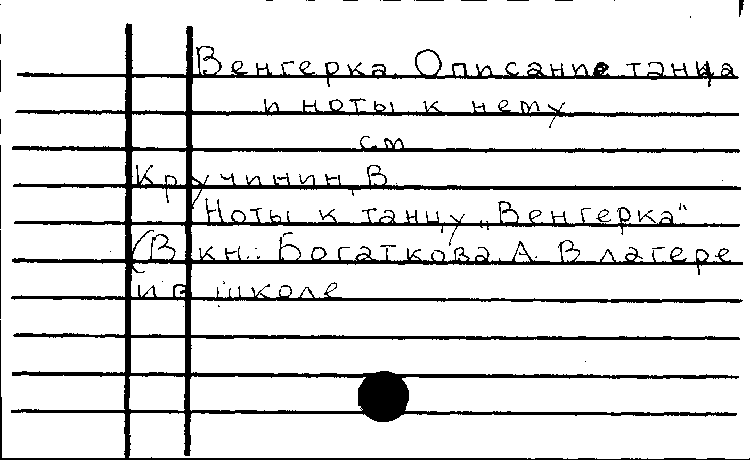 Венгерка. Описание танца
и ноты к нему
см
Кручинин, В.
Ноты к танцу „Венгерка"
(В кн.: Богаткова. А. В лагере
и в школе